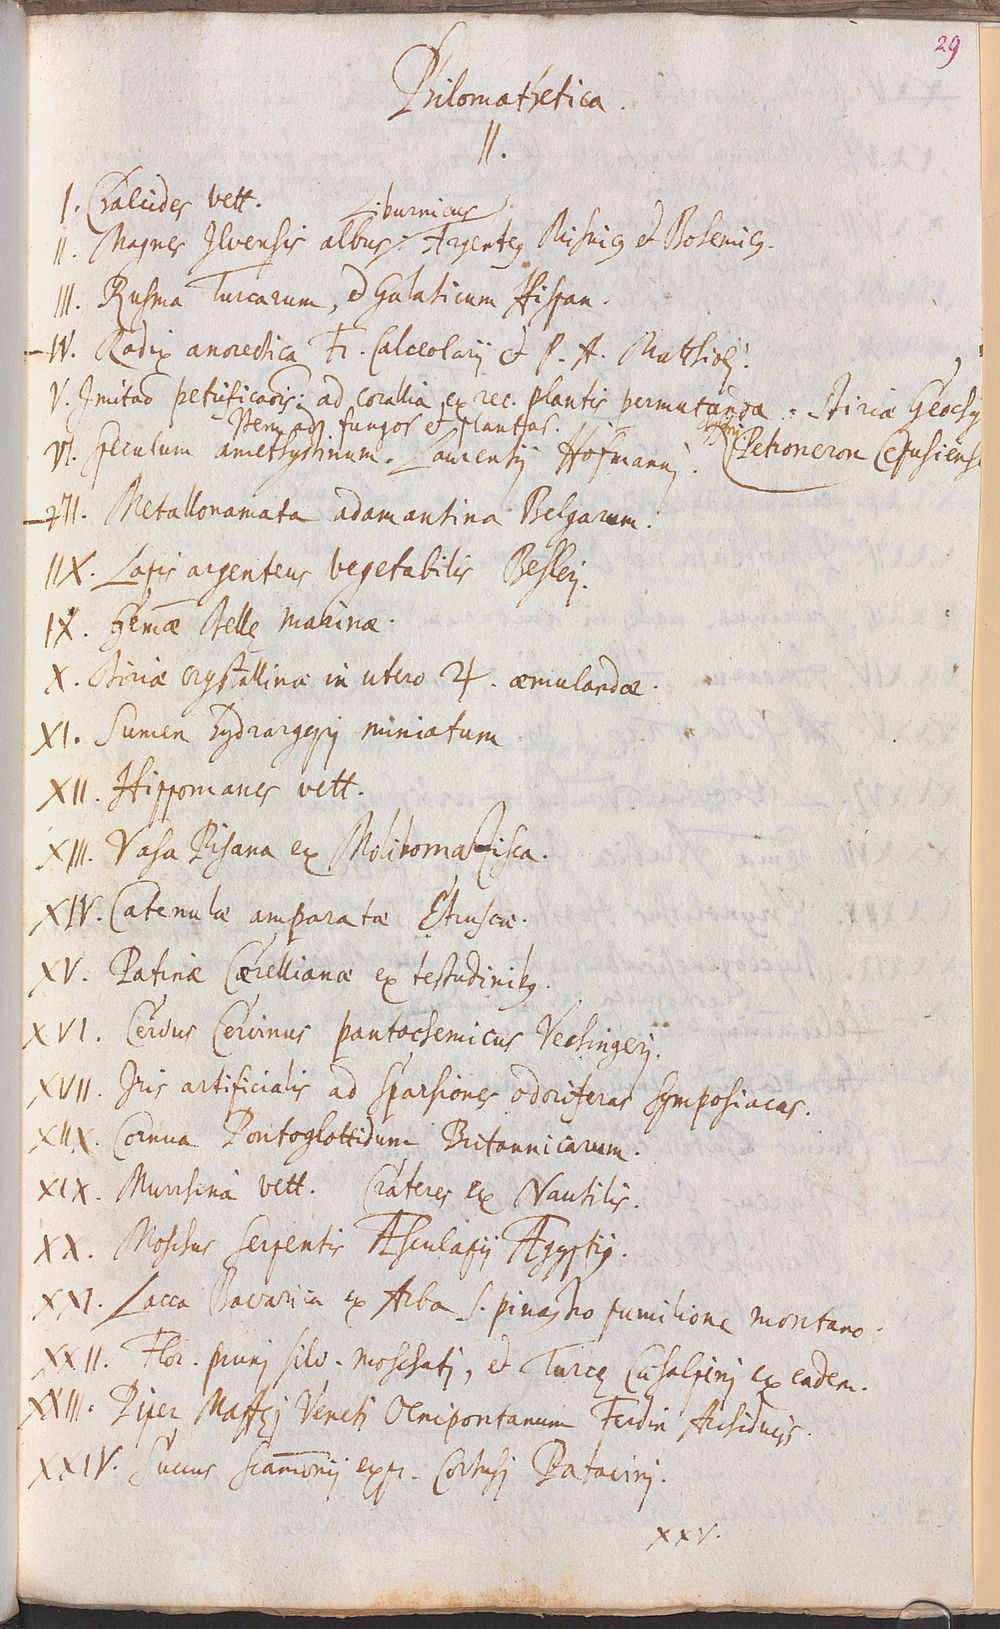 29
Philomathetica.
II.
I. Chalcides vett.
Liburnicus
II. Magnes Ilvensis albus, Argenteq Misnicq et Bohemicq.
III. Rusma Turcarum, et Galaticum Hispan.
IV. Radix anorectica Fr. Calceolarij et P. A. Matthioli.
V. Imitao petrificaois: ad corallia ex rec. plantis permutanda. Stiriae Geochy
Item ad fungos et plantas.
VI. Speculum amethystinum. Laurentij Hofmannj. Petroneron Cepusiens
VII. Metallonamata adamantina Belgarum.
IIX. Lapis argenteus vegetabilis Besleri.
IX. Gemae stellę marinae.
X. Stiriae crystallinae in utero ♃. aemulandae.
XI. Sumen hydrargyrj miniatum
XII. Hippomanes vett.
XIII. Vasa Pisana ex
XIV. Catenulae amparatae Etruscae.
XV. Patinae Caerellianae ex testudinibq.
XVI. Cervus Cervinus pantochemicus Vechingerj.
XVII. Iris artificialis ad sparsiones odoriferas symposiacas.
XIIX. Cornua Pontoglottidum Britannicarum.
XIX. Murrhina vett. Crateres ex Nautilis.
XX. Moschus serpentis Æsculapij Ægyptij.
XXI. Lacca Bavarica ex Arba S. pinastro pumilione montano.
XXII. Flor. pruni silv. moschati, et Turcę Caesalpinj ex eadem.
XXIII. Piper Maffej Veneti Oenipontanum Ferdin Archiducis.
XXIV. Succus scamonij expr. Cortusj Patavini.
XXV.